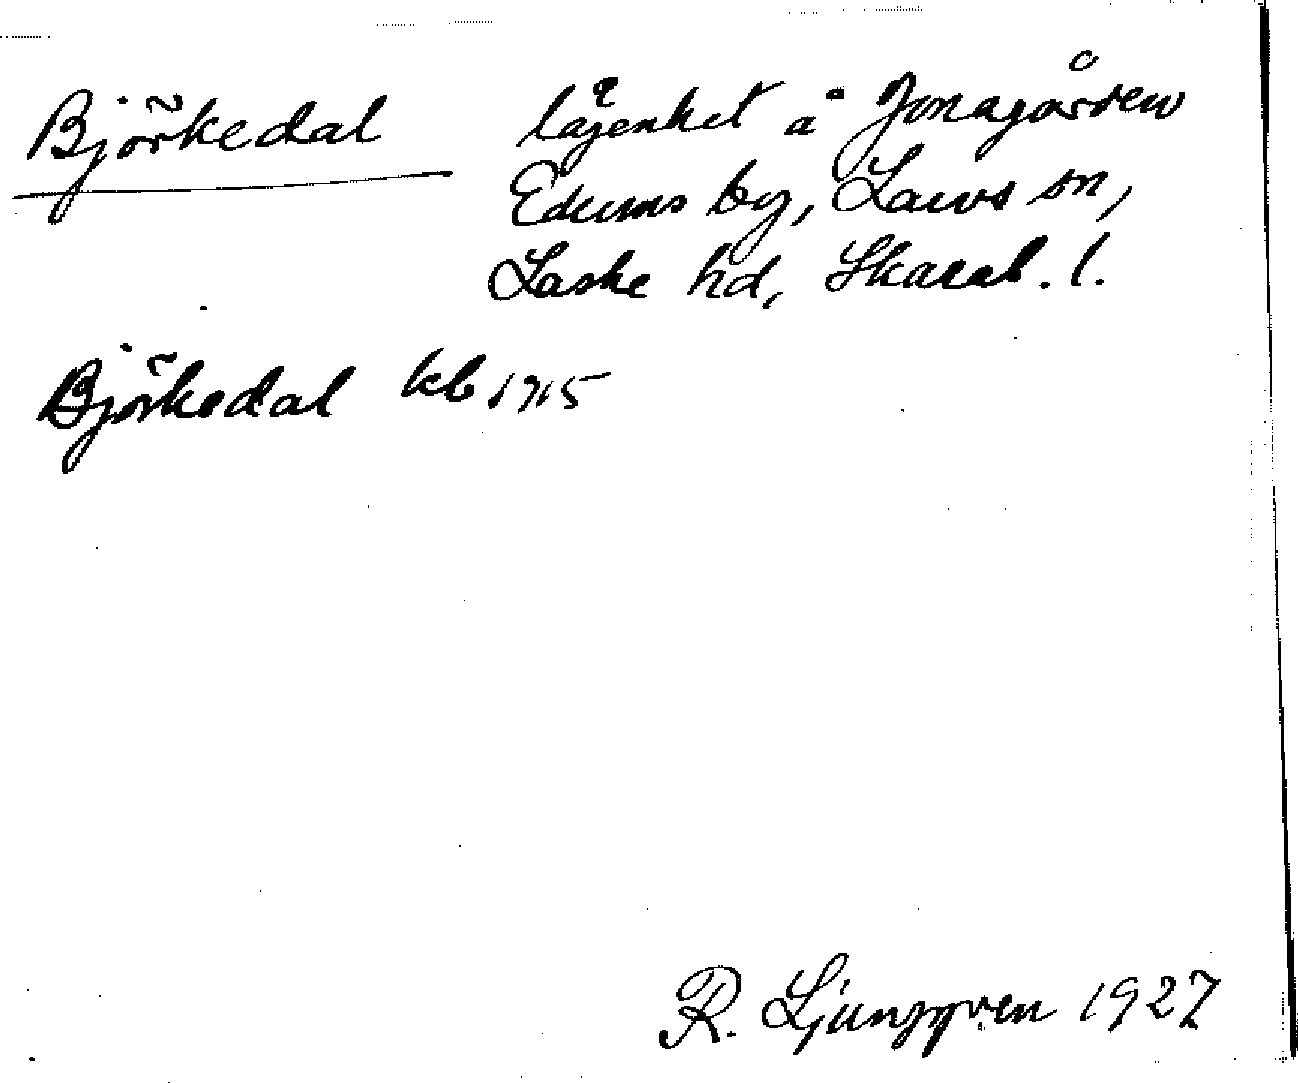 Björkedal lägenhet å Jonagården
Edums by, Larvs sn,
Laske hd, Skarab. l.
Björkedal kb 1715
R. Ljunggren 1927